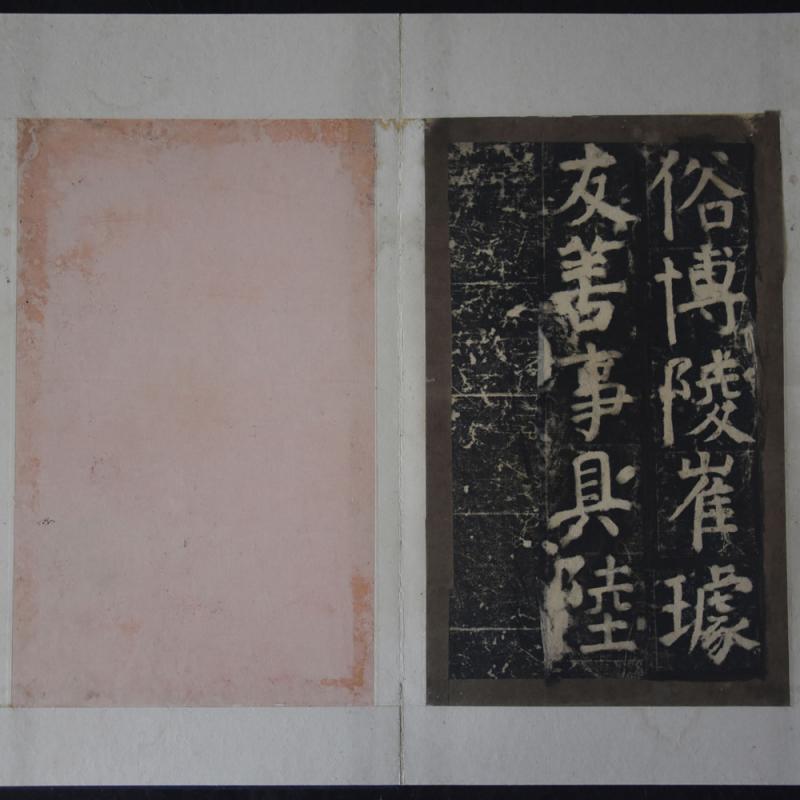 俗博陵崔璩
友善事具陸